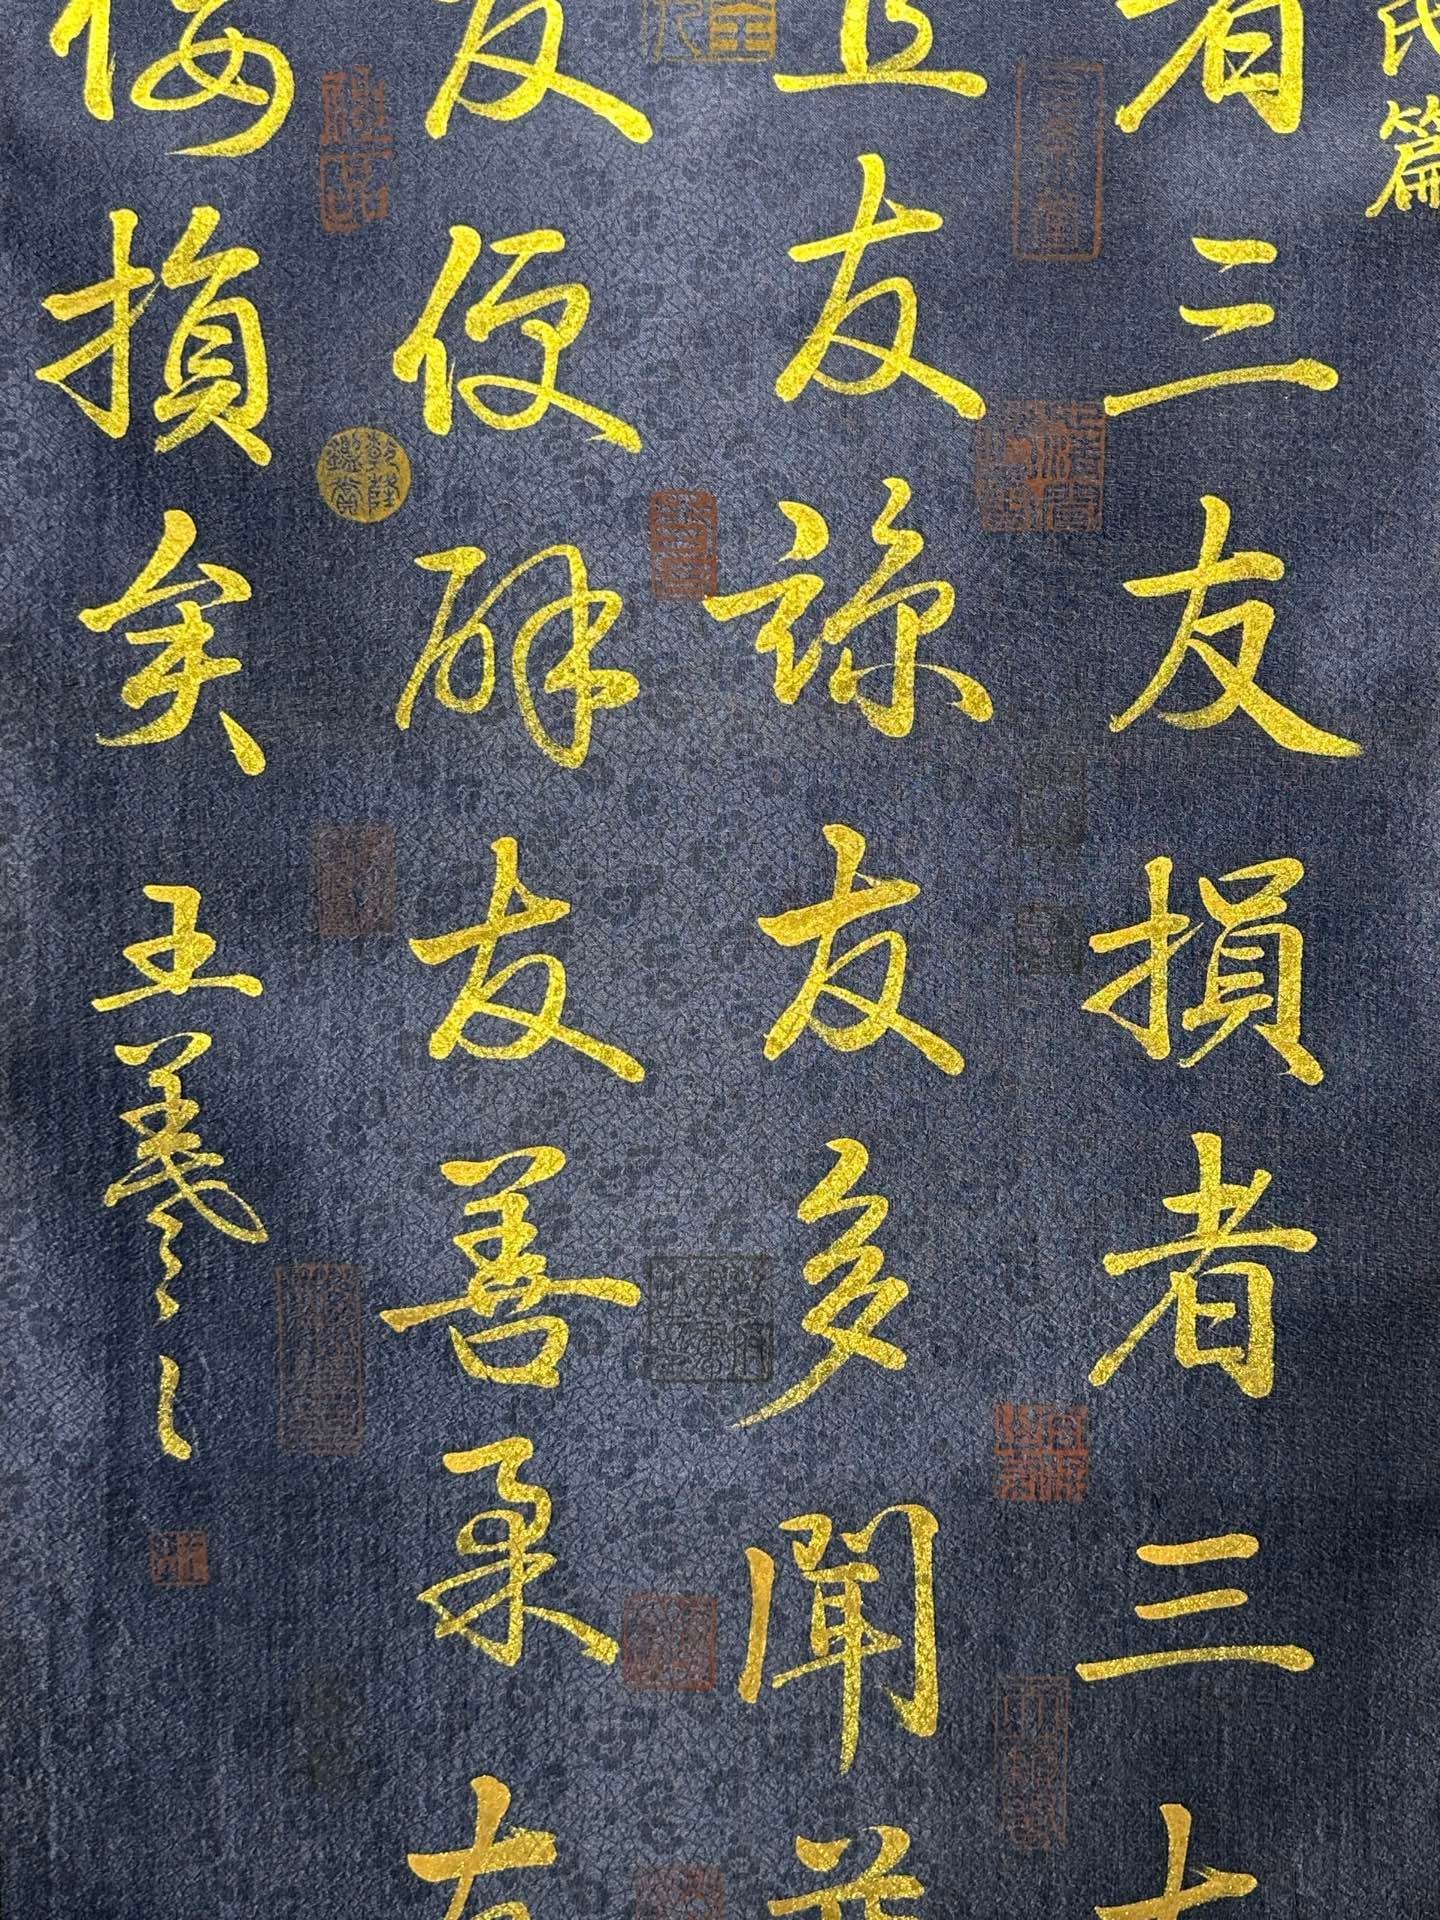 氏篇
者三友損者三友
直友諒友多聞益
友便辟友善柔友
佞損矣
王羲之
乾隆鑑賞